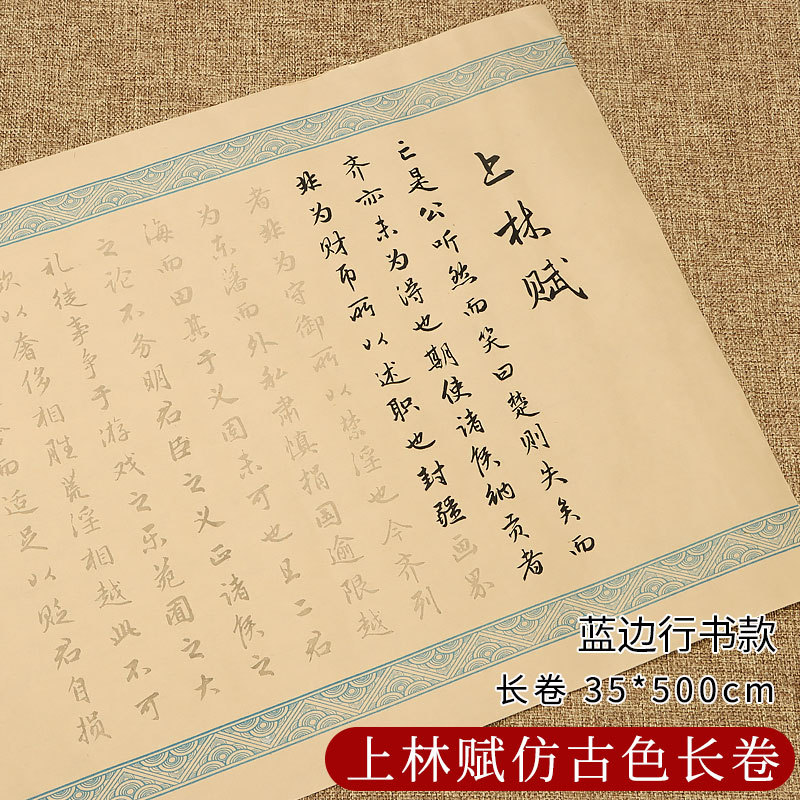 上林赋
亡是公听然而笑曰楚则失矣而
齐亦未为得也期使诸侯纳贡者
非为财币所以述职也封疆画界
者非为守御所以禁淫也今齐列
为东藩而外私肃慎捐国逾限越
海而田其于义固未可也且二君
之论不务明君臣之义正诸侯之
礼徒事争于游戏之乐苑囿之大
欲以奢侈相胜荒淫相越此不可
而适足以贬君自损
蓝边行书款
长卷 35*500cm
上林赋仿古色长卷